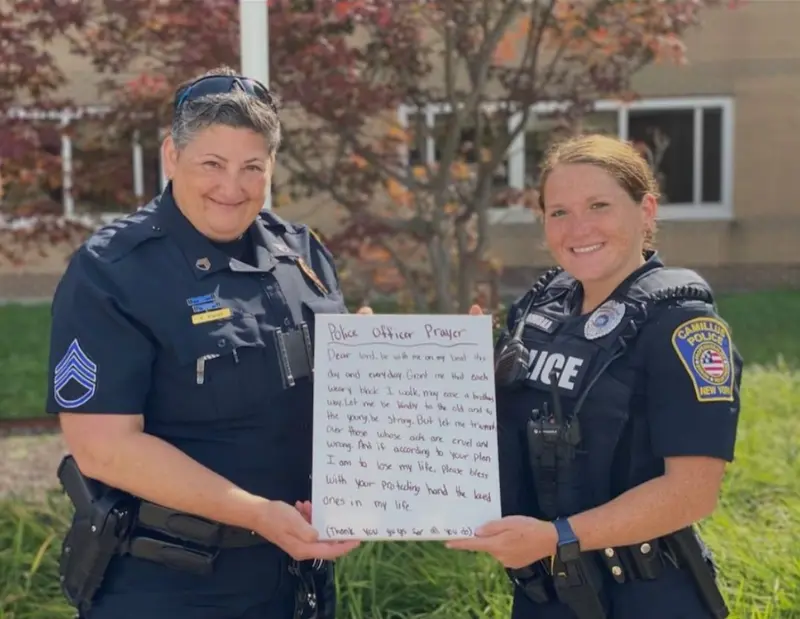 Police Officer Prayer
Dear lord, be with me on my beat this
day and everyday. Grant me that each
weary block I walk, may ease a brothers
way. Let me be kindly to the old and to
the young, be strong. But let me triumph
over those whose acts are cruel and
wrong. And if according to your plan
I am to lose my life, please bless
with your protecting hand the loved
ones in my life.
(Thank you guys for all you do)
POLICE
CAMILLUS POLICE
NEW YORK